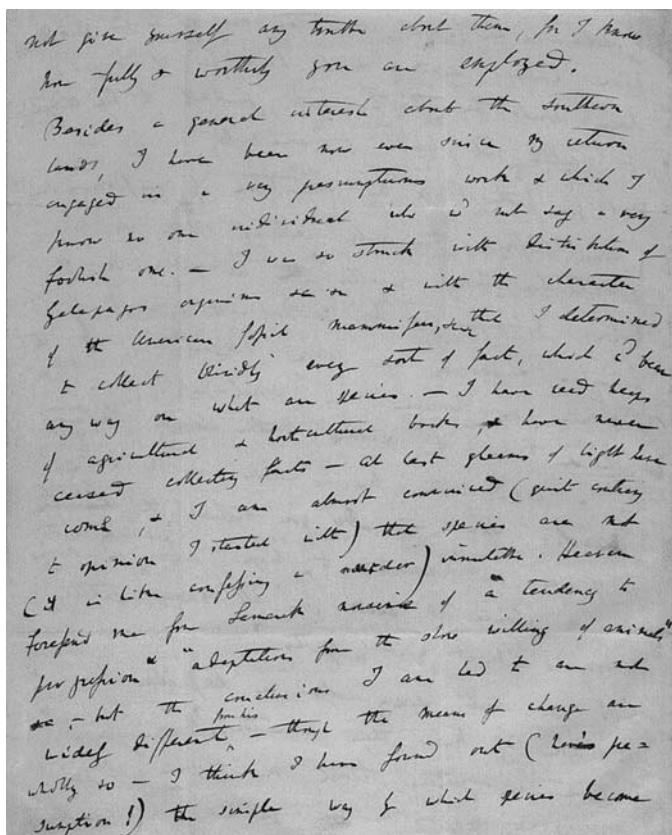 not give yourself any trouble about them, for I know
how fully & worthily you are employed.
Besides a general interest about the Southern
lands, I have been now ever since my return
engaged in a very presumptuous work & which I
know no one individual who wd not say a very
foolish one. — I was so struck with distribution of
Galapagos organisms &c &c & with the character
of the American fossil mammifers, &c &c that I determined
to collect blindly every sort of fact, which cd bear
any way on what are species. — I have read heaps
of agricultural & horticultural books, & have never
ceased collecting facts — At last gleams of light have
come, & I am almost convinced (quite contrary
to opinion I started with) that species are not
(it is like confessing a murder) immutable. Heaven
forfend me from Lamarck nonsense of "a tendency to
progression" "adaptations from the slow willing of animals"
&c, — but the conclusions I am led to are not
widely different from his — though the means of change are
wholly so — I think I have found out (here's pre=
sumption!) the simple way by which species become